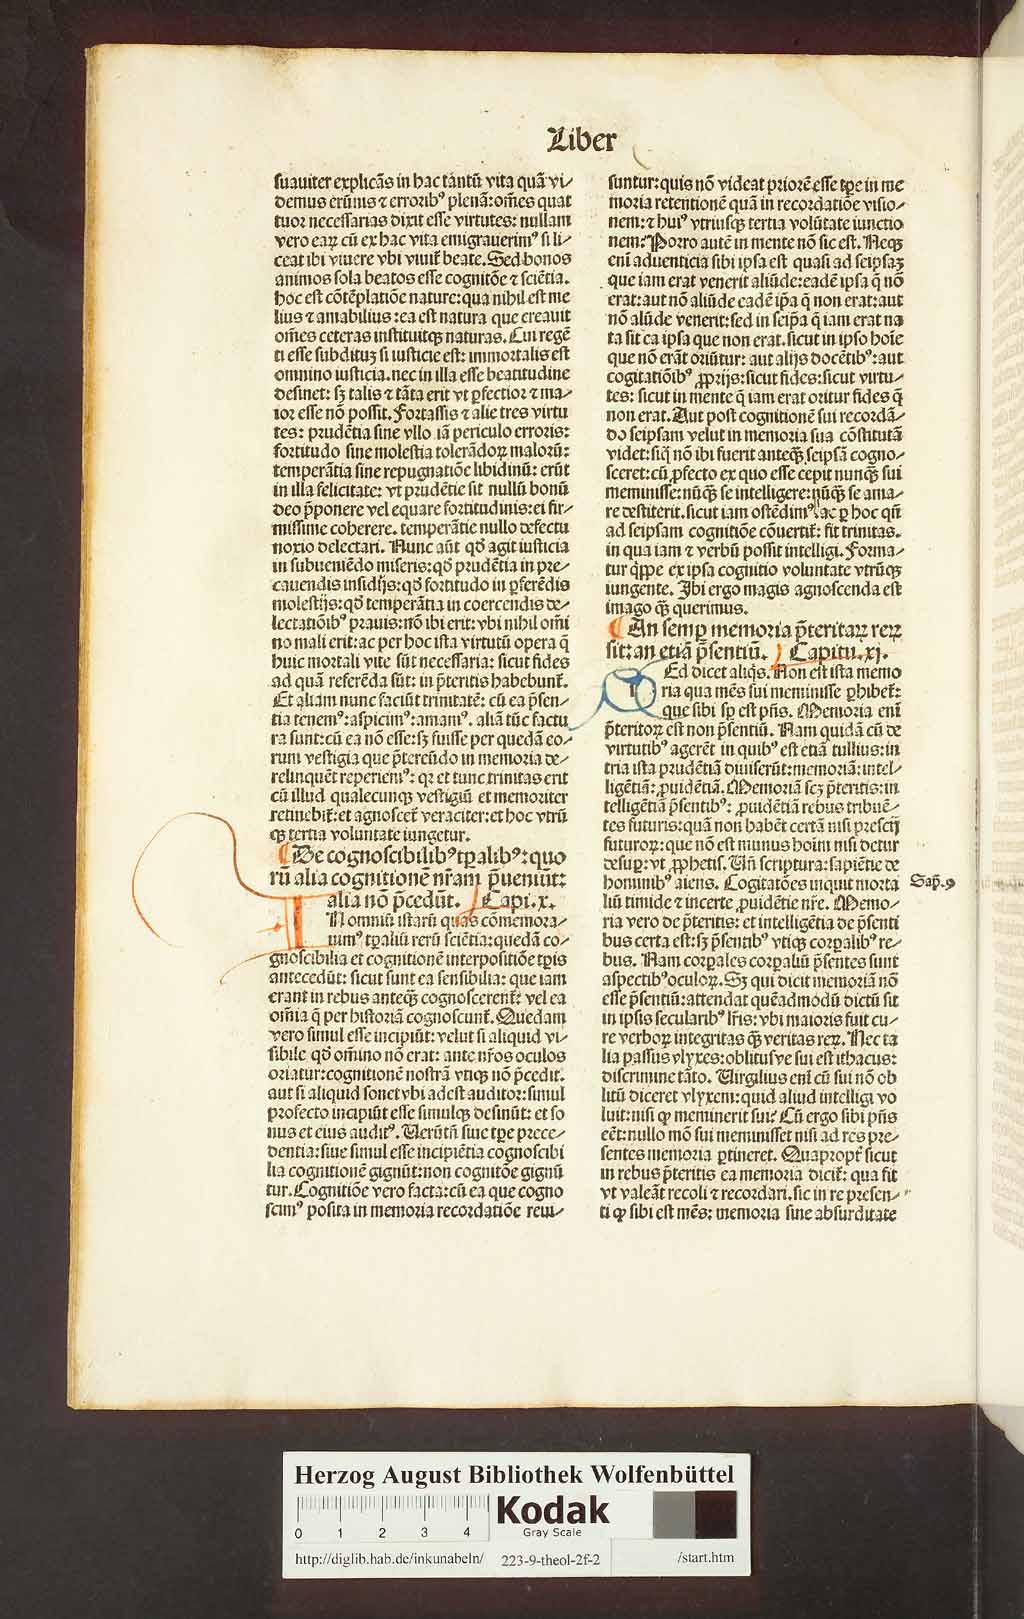 Liber
suauiter explicãs in hac tantũ vita quã vi⸗
demus erũnis ⁊ erroribꝰ plenã: om̃es quat
tuor necessarias dixit esse virtutes: nullam
vero eaꝝ cũ ex hac vita emigrauerimꝰ si li⸗
ceat ibi viuere vbi viuit᷑ beate. Sed bonos
animos sola beatos esse cognitõe ⁊ sciẽtia.
hoc est cõtẽplatiõe nature: qua nihil est me
lius ⁊ amabilius: ea est natura que creauit
om̃es ceteras instituitqꝫ naturas. Cui regẽ
ti esse subdituꝫ si iusticie est: immortalis est
omnino iusticia. nec in illa esse beatitudine
desinet: sꝫ talis ⁊ tãta erit vt ꝑfectior ⁊ ma⸗
ior esse nõ possit. Fortassis ⁊ alie tres virtu
tes: prudẽtia sine vllo iã periculo erroris:
fortitudo sine molestia tolerãdoꝝ maloꝝ:
temperãtia sine repugnatiõe libidinũ: erũt
in illa felicitate: vt prudẽtie sit nullũ bonũ
deo p̃ponere vel equare fortitudinis: ei fir⸗
missime coherere. temperãtie nullo defectu
noxio delectari. Nunc aũt qd̃ agit iusticia
in subueniẽdo miseris: qd̃ prudẽtia in pre⸗
cauendis insidijs: qd̃ fortitudo in ꝑferẽdis
molestijs: qd̃ temperãtia in coercendis de⸗
lectatiõibꝰ prauis: nõ ibi erit: vbi nihil om̃i
no mali erit: ac per hoc ista virtutũ opera q̃
huic mortali vite sũt necessaria: sicut fides
ad quã referẽda sũt: in p̃teritis habebunt᷑.
Et aliam nunc faciũt trinitatẽ: cũ ea p̃sen⸗
tia tenemꝰ: aspicimꝰ: amamꝰ. aliã tũc factu
ra sunt: cũ ea nõ esse: sꝫ fuisse per quedã eo⸗
rum vestigia que p̃tereũdo in memoria de⸗
relinquẽt reperiemꝰ: qꝛ et tunc trinitas erit
cũ illud qualecunqꝫ vestigiũ et memoriter
retinebit᷑: et agnoscet᷑ veraciter: et hoc vtrũ
qꝫ tertia voluntate iungetur.
¶ De cognoscibilibꝰ tꝑalibꝰ: quo
rũ alia cognitionẽ nr̃am p̃ueniũt:
alia nõ p̃cedũt. Capi. x.
IN omniũ istarũ quas cõmemora⸗
uimꝰ tꝑaliũ rerũ sciẽtia: quedã co⸗
gnoscibilia et cognitionẽ interpositiõe tꝑis
antecedũt: sicut sunt ea sensibilia: que iam
erant in rebus anteqꝫ cognoscerent᷑: vel ea
om̃ia q̃ per historiã cognoscunt᷑. Quedam
vero simul esse incipiũt: velut si aliquid vi⸗
sibile qd̃ om̃ino nõ erat: ante nr̃os oculos
oriatur: cognitionẽ nostrã vtiqꝫ nõ p̃cedit.
aut si aliquid sonet vbi adest auditor: simul
profecto incipiũt esse simulqꝫ desinũt: et so
nus et eius auditꝰ. Uerũtñ siue tꝑe prece⸗
dentia: siue simul esse incipiẽtia cognoscibi
lia cognitionẽ gignũt: non cognitõe gignũ
tur. Cognitiõe vero facta: cũ ea que cogno
scimꝰ posita in memoria recordatiõe reui⸗
suntur: quis nõ videat priorẽ esse tꝑe in me
moria retentionẽ quã in recordatiõe visio⸗
nem: ⁊ huiꝰ vtriusqꝫ tertia volũtate iunctio
nem: Porro autẽ in mente nõ sic est. Neqꝫ
eni᷑ aduenticia sibi ipsa est quasi ad seipsaꝫ
que iam erat venerit aliũde: eadẽ ipsa q̃ nõ
erat: aut nõ aliũde eadẽ ip̃a q̃ non erat: aut
nõ aliũde venerit: sed in seip̃a q̃ iam erat na
ta sit ea ipsa que non erat. sicut in ipso hoĩe
que nõ erãt oriũtur: aut alijs docẽtibꝰ: aut
cogitatiõibꝰ ꝓprijs: sicut fides: sicut virtu⸗
tes: sicut in mente q̃ iam erat oritur fides q̃
non erat. Aut post cognitionẽ sui recordã⸗
do seipsam velut in memoria sua cõstitutã
videt: siq̃ nõ ibi fuerit anteqꝫ seipsã cogno⸗
sceret: cũ ꝓfecto ex quo esse cepit nunqꝫ sui
meminisse: nũqꝫ se intelligere: nũqꝫ se ama⸗
re destiterit. sicut iam ostẽdimꝰ. ac ꝑ hoc qñ
ad seipsam cognitiõe cõuertit᷑: fit trinitas.
in qua iam ⁊ verbũ possit intelligi. Forma⸗
tur q̃ppe ex ipsa cognitio voluntate vtrũqꝫ
iungente. Ibi ergo magis agnoscenda est
imago qꝫ querimus.
¶ An semꝑ memoria p̃teritaꝝ reꝝ
sit: an etiã p̃sentiũ. Capitu. xj.
SEd dicet aliq̃s. Non est ista memo
ria qua mẽs sui meminisse ꝑhibet᷑:
que sibi sꝑ est pñs. Memoria eni᷑
p̃teritoꝝ est non p̃sentiũ. Nam quidã cũ de
virtutibꝰ agerẽt in quibꝰ est etiã tullius: in
tria ista prudẽtiã diuiserũt: memoriã: intel⸗
ligẽtiã: ꝓuidẽtiã. Memoriã scꝫ p̃teritis: in
telligẽtiã p̃sentibꝰ: ꝓuidẽtiã rebus tribuẽ⸗
tes futuris: quã non habẽt certã nisi prescij
futuroꝝ: que nõ est munus hoĩni nisi detur
desuꝑ: vt ꝓphetis. Uñ scriptura: sapiẽtie de
hominibꝰ aiens. Cogitatões inquit morta
liũ timide ⁊ incerte ꝓuidẽtie nr̃e. Memo⸗
ria vero de p̃teritis: et intelligẽtia de p̃senti
bus certa est: sꝫ p̃sentibꝰ vtiqꝫ corꝑalibꝰ re⸗
bus. Nam corꝑales corꝑaliũ p̃sentes sunt
aspectibꝰ oculoꝝ. Sꝫ qui dicit memoriã nõ
esse p̃sentiũ: attendat quẽadmodũ dictũ sit
in ipsis secularibꝰ lr̃is: vbi maioris fuit cu⸗
re verboꝝ integritas qꝫ veritas reꝝ. Nec ta
lia passus vlyxes: oblitusve sui est ithacus:
discrimine tãto. Uirgilius eni᷑ cũ sui nõ ob
litũ diceret vlyxem: quid aliud intelligi vo
luit: nisi ꝙ meminerit sui? Cũ ergo sibi pñs
eẽt: nullo mõ sui meminisset nisi ad res pre⸗
sentes memoria ꝑtineret. Quapropt᷑ sicut
in rebus p̃teritis ea memoria dicit᷑: qua fit
vt valeãt recoli ⁊ recordari. sic in re presen⸗
ti ꝙ sibi est mẽs: memoria sine absurditate
Sap̃. 9
Herzog August Bibliothek Wolfenbüttel
0 1 2 3 4
Kodak
Gray Scale
http://diglib.hab.de/inkunabeln/ 223-9-theol-2f-2 /start.htm